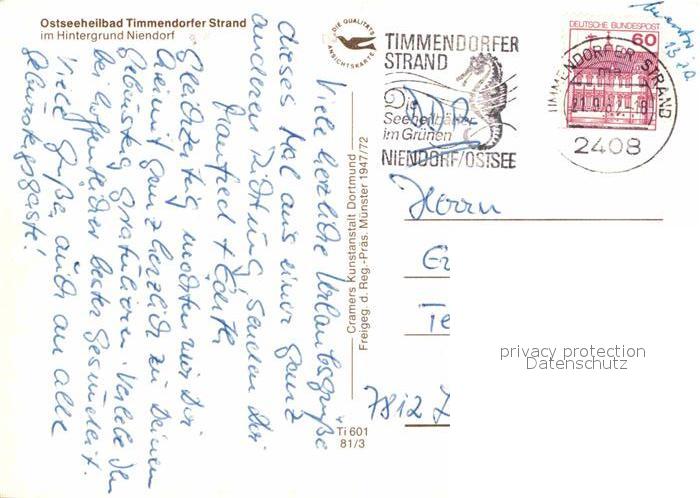 Ostseeheilbad Timmendorfer Strand
im Hintergrund Niendorf
DIE QUALITÄTS
ANSICHTSKARTE
TIMMENDORFER
STRAND
Die
Seeheilbäder
im Grünen
NIENDORF/OSTSEE
DEUTSCHE BUNDESPOST
60
TIMMENDORFER STRAND
2408
Viele herzliche Urlaubsgrüße
dieses Mal aus einer ganz
anderen Richtung, senden Dir
Manfred + Edith
Gleichzeitig möchten wir Dir
heute ganz herzlich zu Deinem
Geburtstag gratulieren. Verlebe ihn
bei hoffentlich bester Gesundheit.
Viele Grüße auch an alle
Geburtstagsgäste!
Cramers Kunstanstalt Dortmund
Freigeg. d. Reg.-Präs. Münster 1947/72
Ti 601
81/3
Herrn
Er
Te
7812
privacy protection
Datenschutz